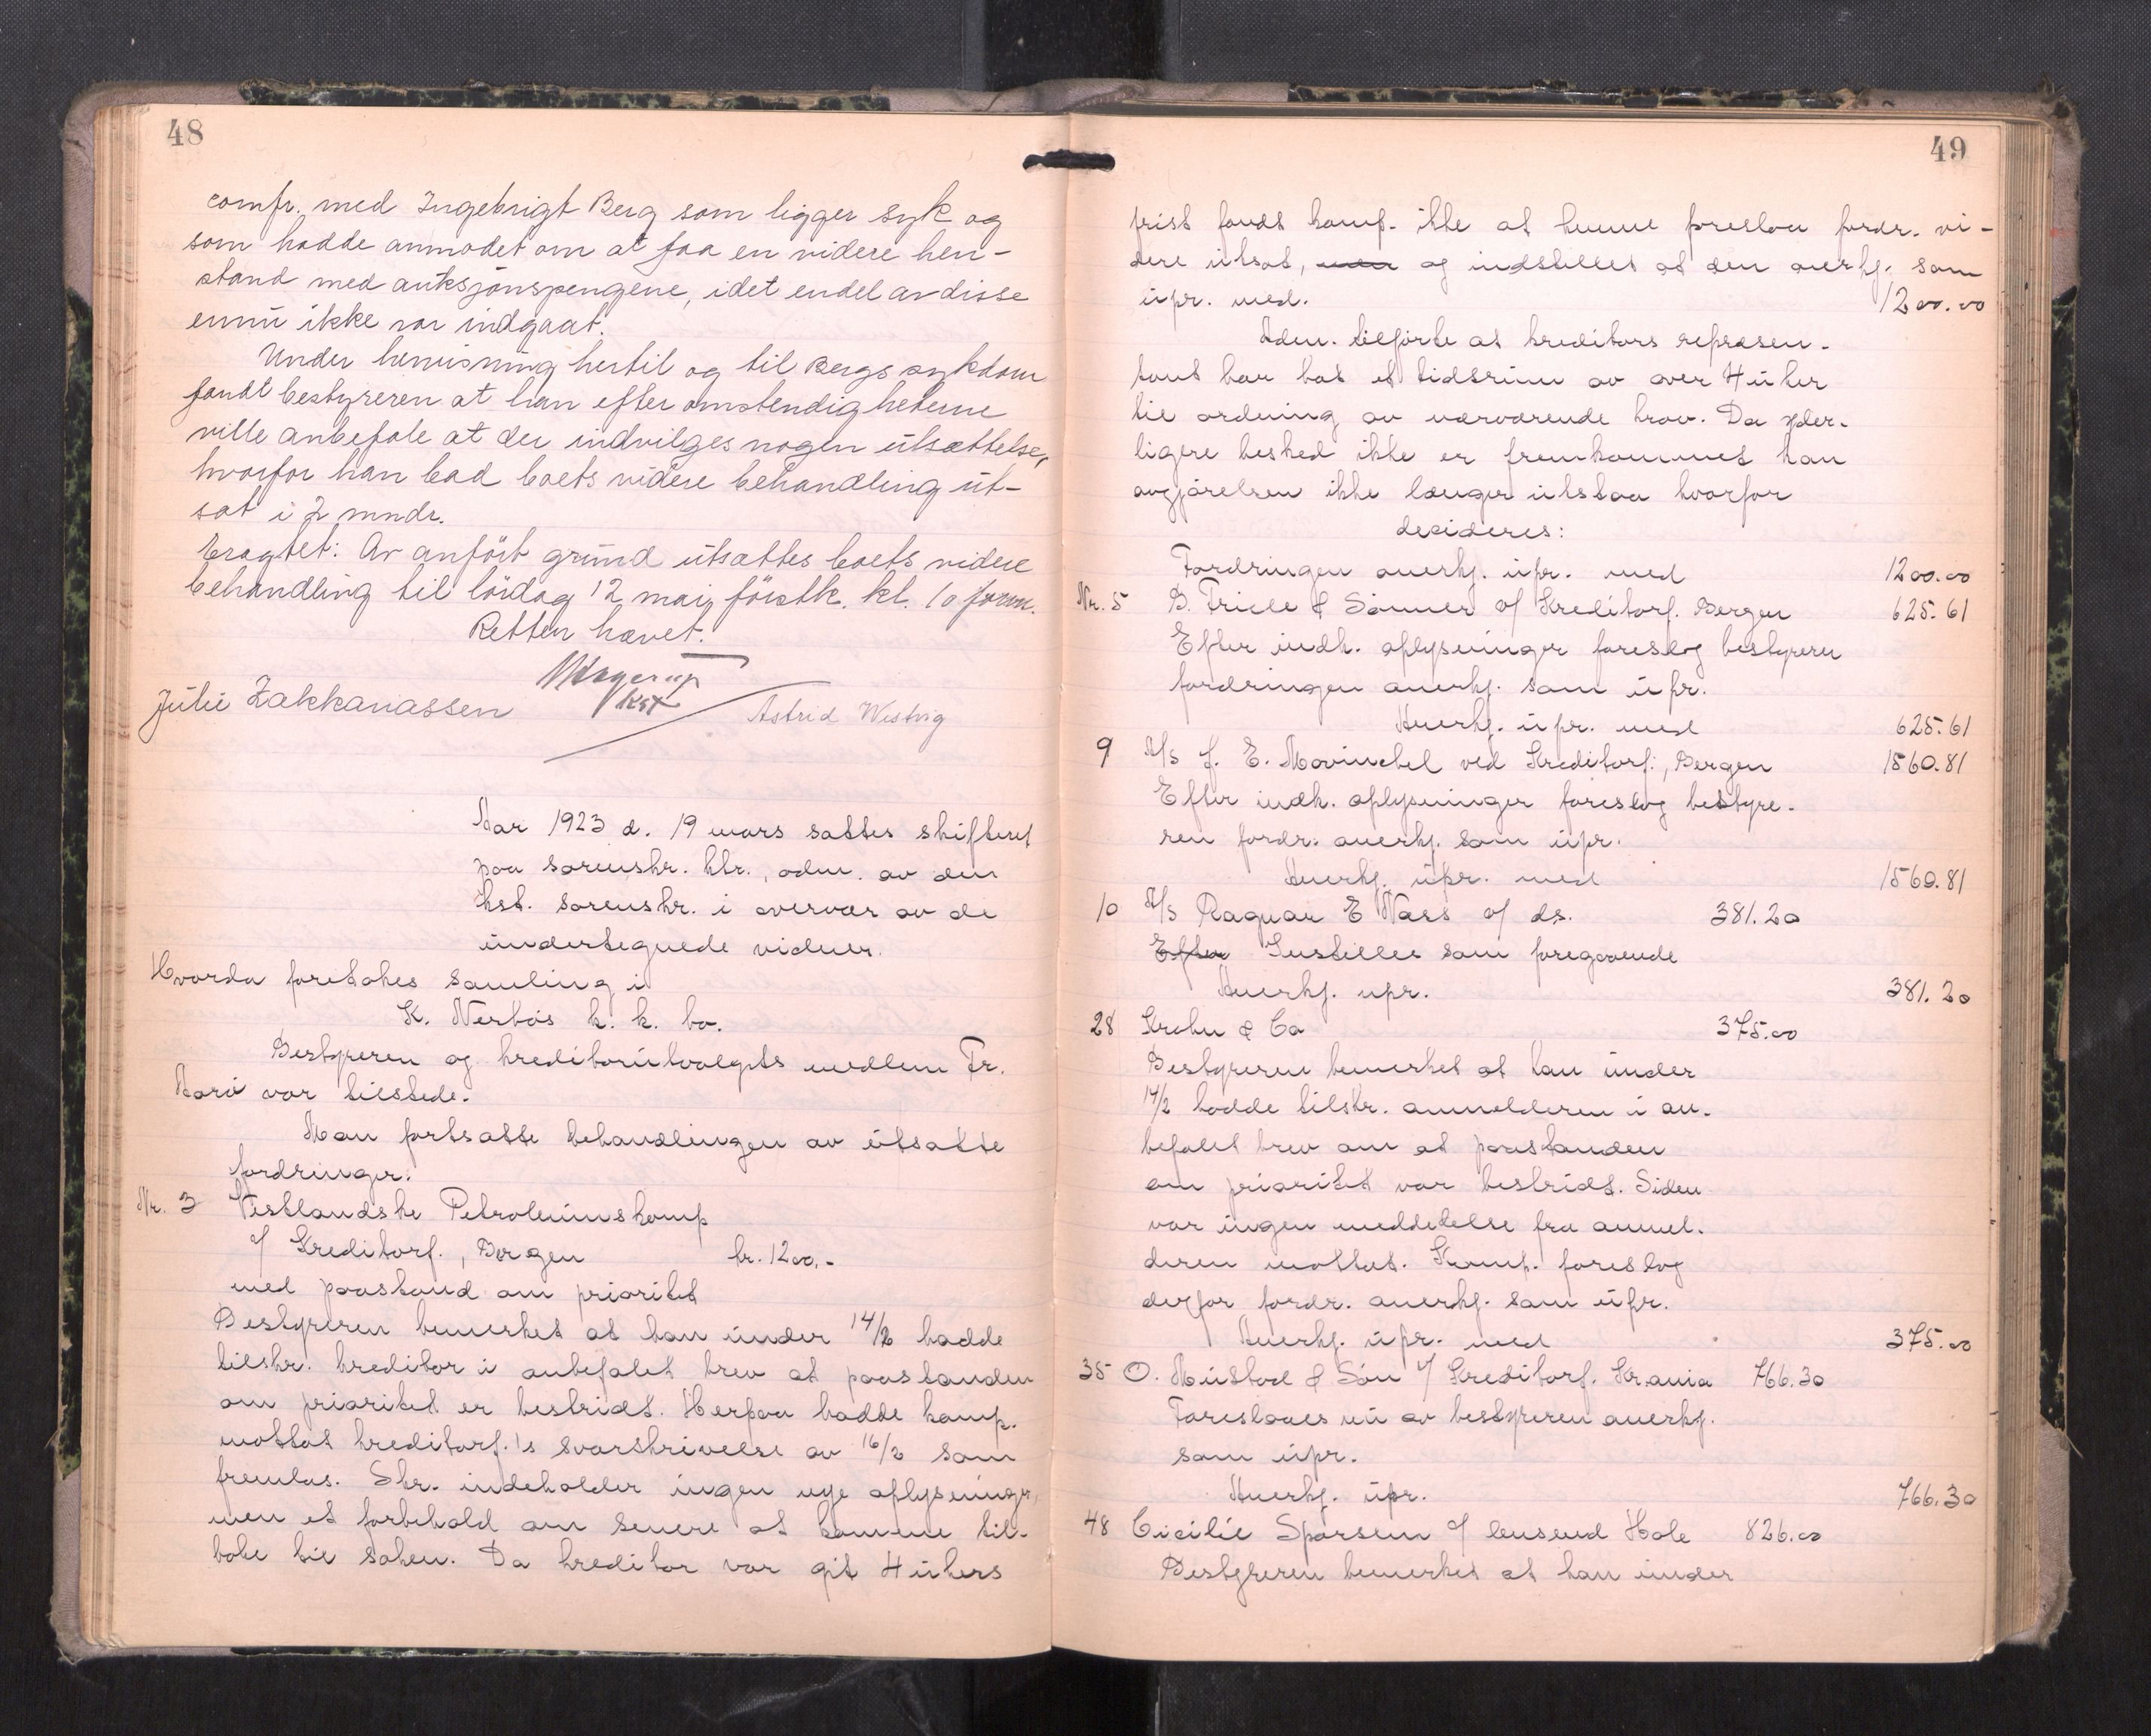 48
comfr. med Ingebrigt Berg som ligger syk og
som hadde anmodet om at faa en videre hen-
stand med auksjonspengene, idet endel av disse
ennu ikke var indgaat.
Under henvisning hertil og til Bergs sykdom
fandt bestyreren at han efter omstendigheterne
ville anbefale at der indvilges nogen utsættelse,
hvorfor han bad boets videre behandling ut-
sat i 2 mndr.
Eragtet: Av anført grund utsættes boets videre
behandling til lördag 12 mai förstk. kl. 10 form.
Retten hævet.
Hagerup
kst
Julie Zakkariassen
Astrid Westvig
Aar 1923 d. 19 mars sattes skifteret
paa sorenskr. ktr., adm. av den
kst. sorenskr. i overvær av de
undertegnede vidner.
Hvorda foretokes samling i
K. Nerbös k. k. bo.
Bestyreren og kreditorutvalgets medlem Fr.
var tilstede.
Man fortsatte behandlingen av utsatte
fordringer.
Nr. 3 Vestlandske Petroleumskomp
v/ Kreditorf., Bergen kr. 1200.-
med paastand om prioritet
Bestyreren bemerket at han under 14/2 hadde
tilskr. kreditor i anbefalet brev at paastanden
om prioritet er bestridt. Herpaa hadde komp.
mottat kreditorf.'s svarskrivelse av 16/2 som
fremlas. Skr. indeholder ingen nye oplysninger,
men et forbehold om senere at komme til-
bake til saken. Da kreditor var git 4 ukers
49
frist fandt komp. ikke at kunne foreslaa fordr. vi-
dere utsat, men og indstilles at den anerkj. som
upr. med. 1200.00
Adm. tilførte at kreditors represen-
tant har hat et tidsrum av over 4 uker
til ordning av nærværende krav. Da yder-
ligere besked ikke er fremkommet kan
avgjörelsen ikke længer utstaa hvorfor
decideres:
Fordringen anerkj. upr. med 1200.00
Nr. 5 B. Friele & Sönner v/ Kreditorf. Bergen 625.61
Efter indh. oplysninger foreslog bestyreren
fordringen anerkj. som upr.
Anerkj. upr. med 625.61
9 A/S J. E. Mowinckel ved Kreditorf., Bergen 1560.81
Efter indh. oplysninger foreslog bestyre-
ren fordr. anerkj. som upr.
Anerkj. upr. med 1560.81
10 A/S Ragnar E Næss v/ ds. 381.20
Efter Instilles som foregaaende
Anerkj. upr. 381.20
28 Krohn & Co 375.00
Bestyreren bemerket at han under
14/2 hadde tilskr. anmelderen i an-
befalet brev om at paastanden
om prioritet var bestridt. Siden
var ingen meddelelse fra anmel-
deren mottat. Komp. foreslog
derfor fordr. anerkj. som upr.
Anerkj. upr. med 375.00
35 O. Mustad & Sön v/ Kreditorf. Kr.ania 766.30
Foreslaaes nu av bestyreren anerkj.
som upr.
Anerkj. upr. 766.30
48 Cicilie Sparsem v/ lensmd Hole 826.00
Bestyreren bemerket at han under